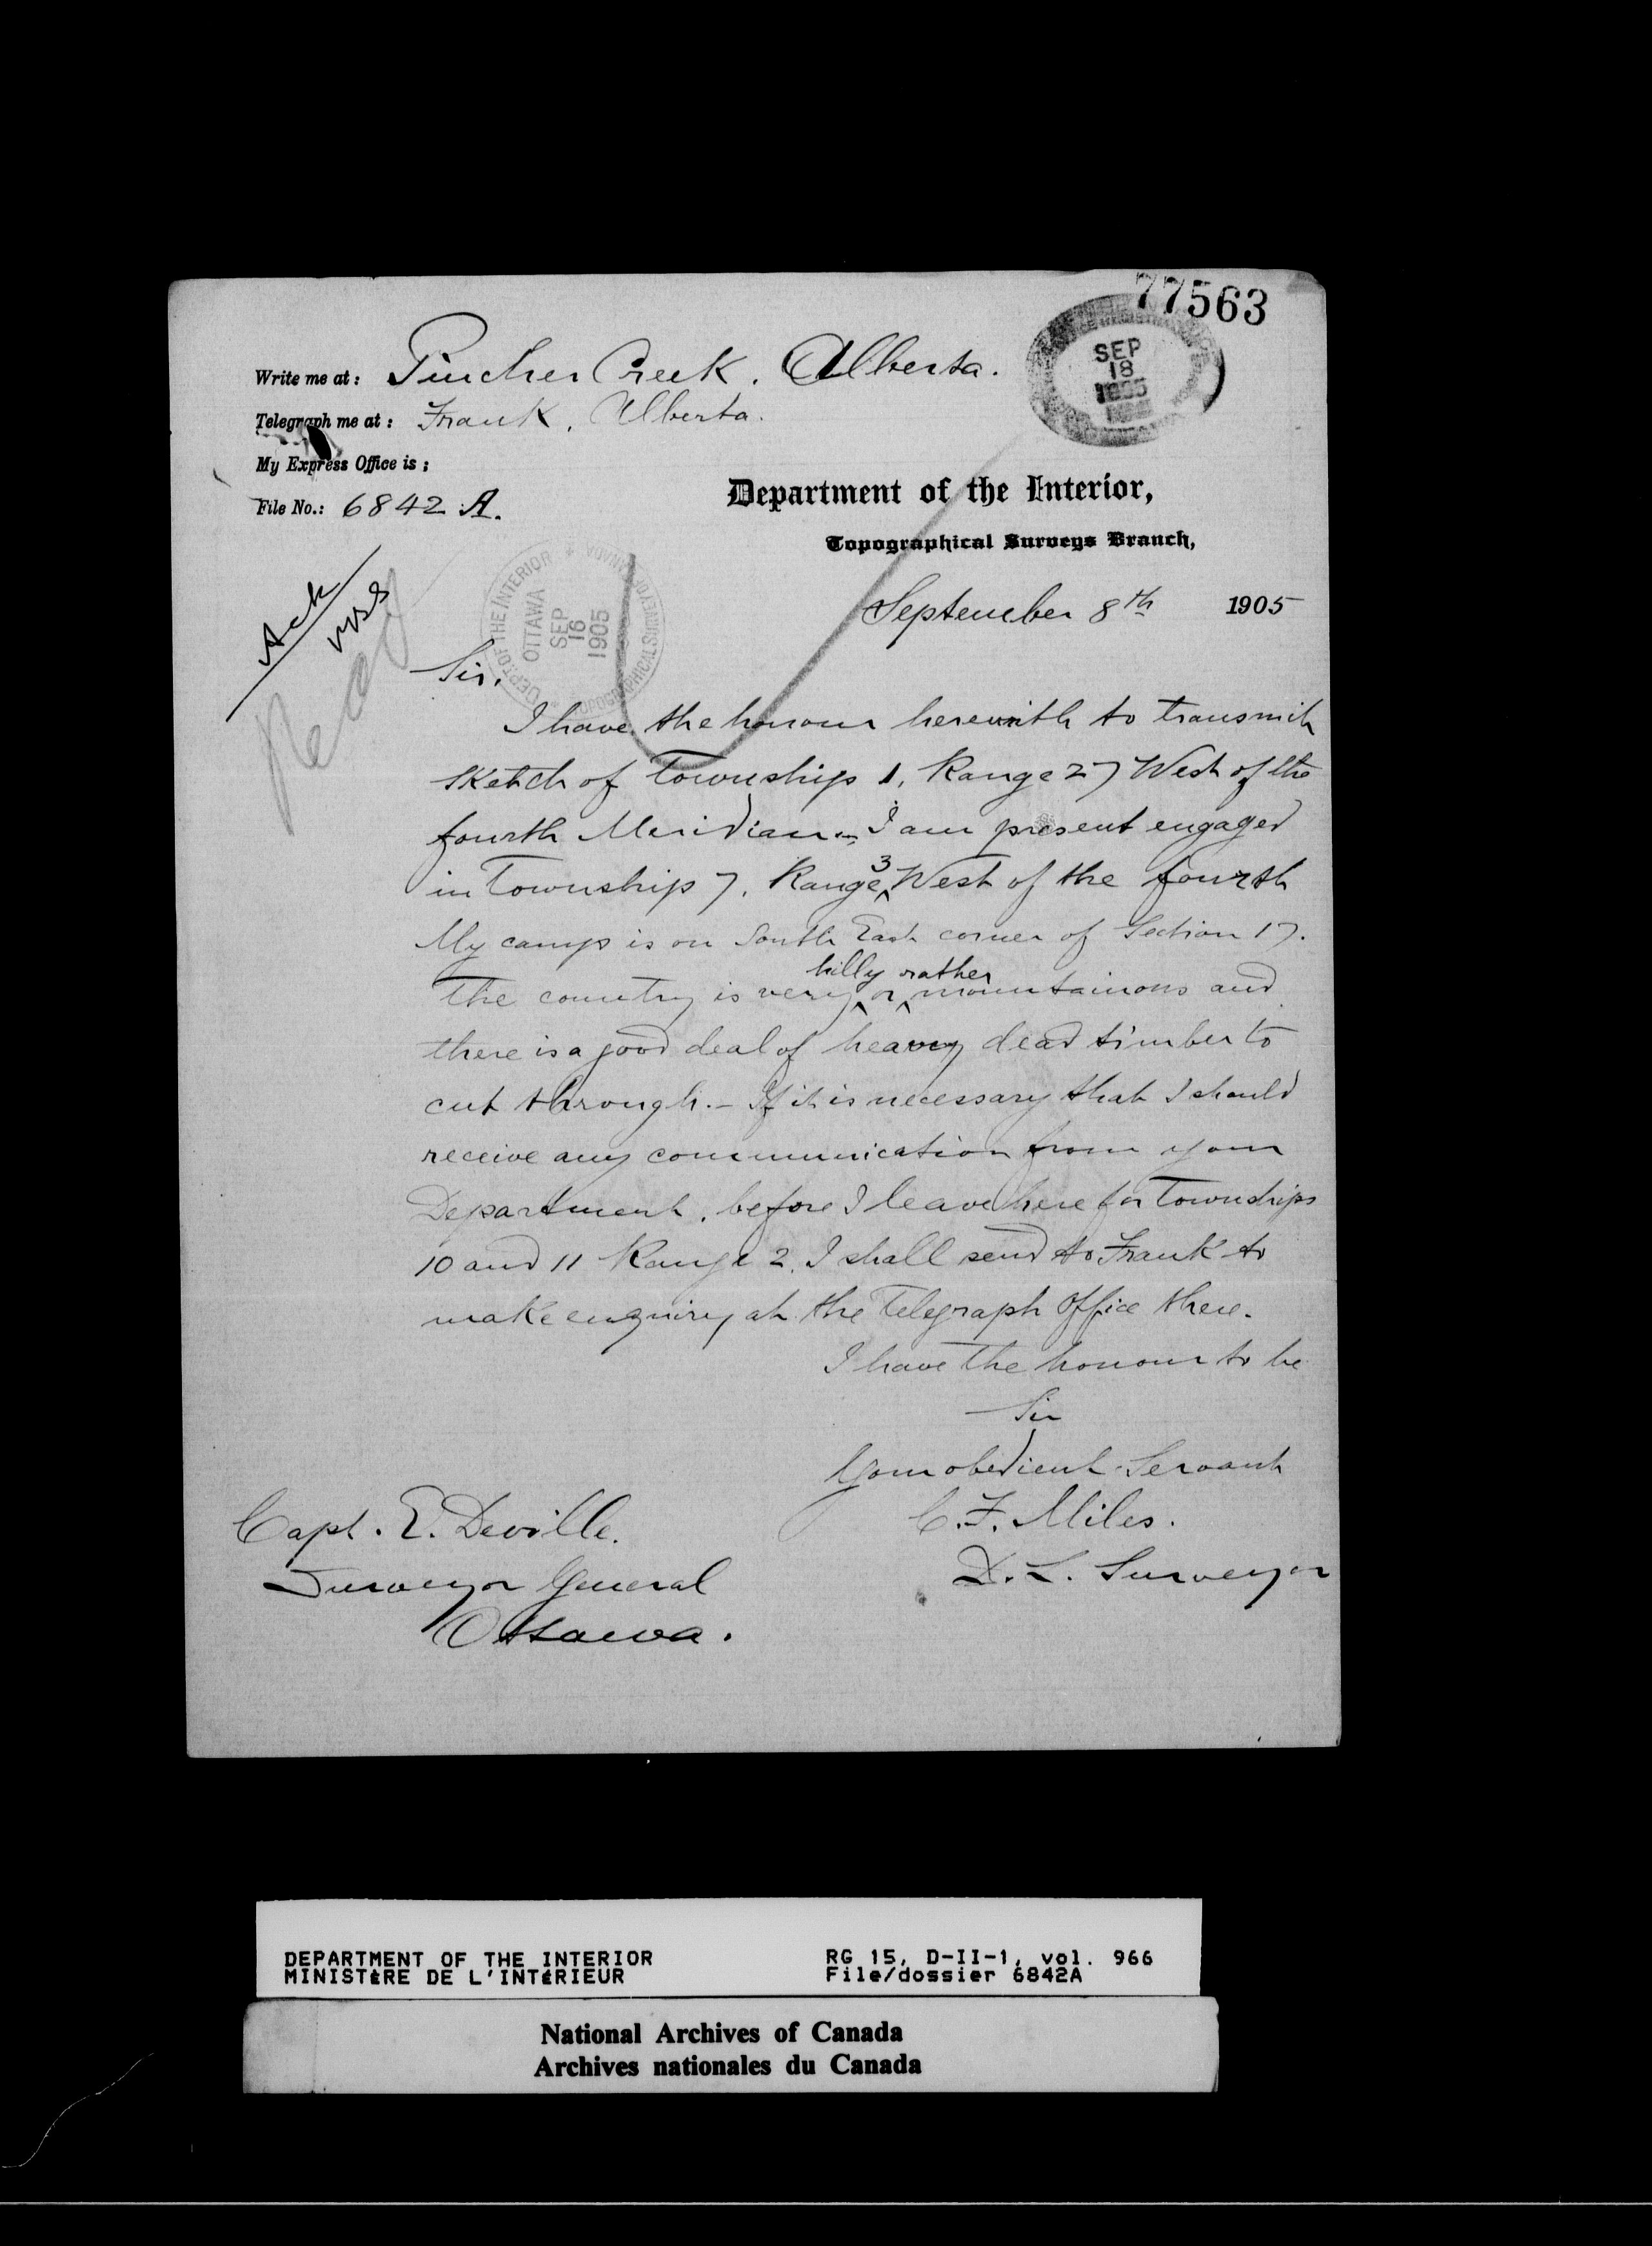 77563
SEP
18
1905
Write me at: Pincher Creek. Alberta.
Telegraph me at: Frank, Alberta.
My Express Office is:
File No.: 6842 A.
Department of the Interior,
Topographical Surveys Branch,
DEPT. OF THE INTERIOR
OTTAWA
SEP
16
1905
TOPOGRAPHICAL SURVEYS CANADA
September 8th 1905
Ack
Sir.
I have the honour herewith to transmit
sketch of Township 1, Range 27 West of the
fourth Meridian.- I am present engaged
in Township 7, Range 3 West of the fourth
My camp is on South East corner of Section 17.
The country is very hilly or rather mountainous and
there is a good deal of heavy dead timber to
cut through.- If it is necessary that I should
receive any communication from your
Department, before I leave here for Townships
10 and 11 Range 2, I shall send to Frank to
make enquiry at the Telegraph Office there.
I have the honour to be
Sir
Your obedient Servant
C. F. Miles.
D. L. Surveyor
Capt. E. Deville.
Surveyor General
Ottawa.
DEPARTMENT OF THE INTERIOR RG 15, D-II-1, vol. 966
MINISTÈRE DE L'INTÉRIEUR File/dossier 6842A
National Archives of Canada
Archives nationales du Canada